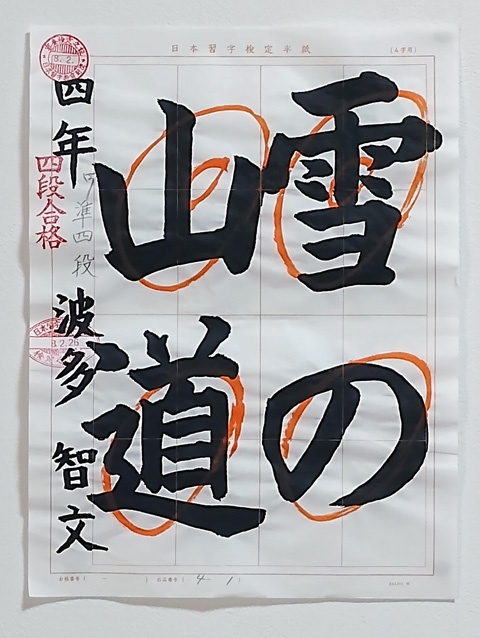 日本習字検定半紙
(4字用)
雪の
山道
四年
波多智文
準四段
四段合格
8.2.
8.2.26
4 1